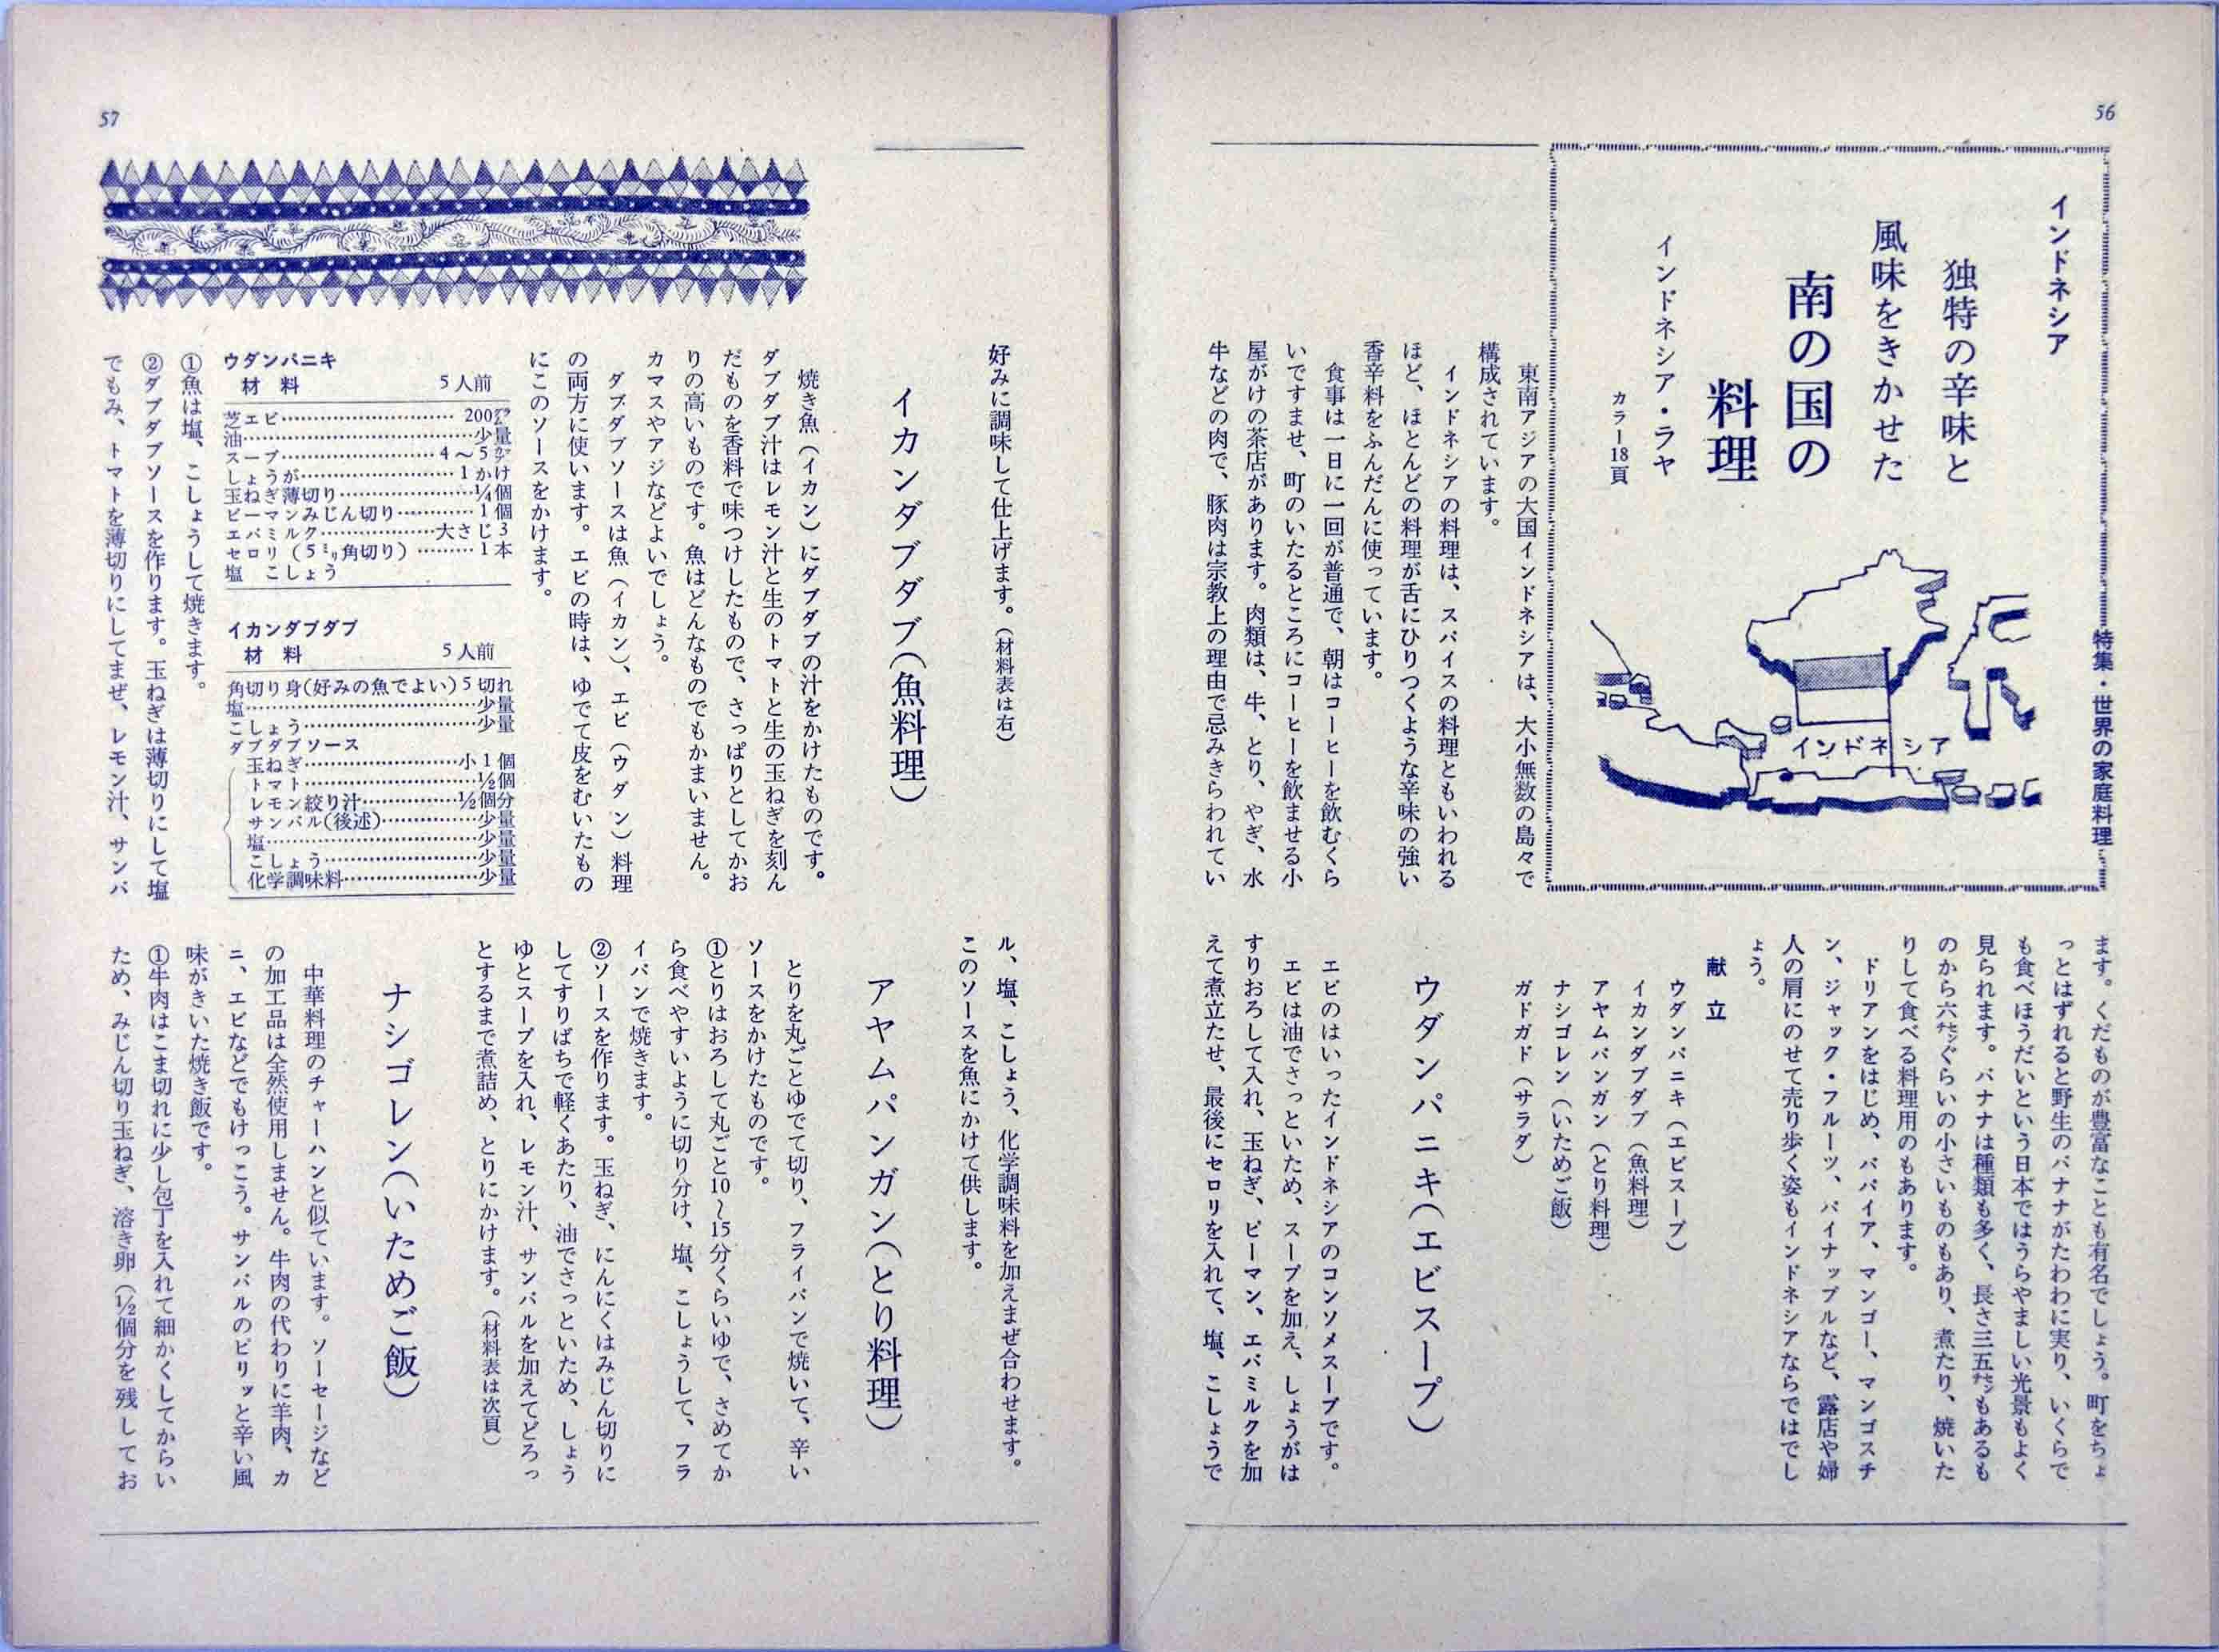 56
特集・世界の家庭料理
インドネシア
独特の辛味と
風味をきかせた
南の国の
料理
インドネシア・ラヤ
カラー18頁
インドネシア
東南アジアの大国インドネシアは、大小無数の島々で
構成されています。
インドネシアの料理は、スパイスの料理ともいわれる
ほど、ほとんどの料理が舌にひりつくような辛味の強い
香辛料をふんだんに使っています。
食事は一日に一回が普通で、朝はコーヒーを飲むくら
いですませ、町のいたるところにコーヒーを飲ませる小
屋がけの茶店があります。肉類は、牛、とり、やぎ、水
牛などの肉で、豚肉は宗教上の理由で忌みきらわれてい
ます。くだものが豊富なことも有名でしょう。町をちょ
っとはずれると野生のバナナがたわわに実り、いくらで
も食べほうだいという日本ではうらやましい光景もよく
見られます。バナナは種類も多く、長さ三五センもあるも
のから六センぐらいの小さいものもあり、煮たり、焼いた
りして食べる料理用のもあります。
ドリアンをはじめ、パパイア、マンゴー、マンゴスチ
ン、ジャック・フルーツ、パイナップルなど、露店や婦
人の肩にのせて売り歩く姿もインドネシアならではでし
ょう。
献立
ウダンパニキ（エビスープ）
イカンダブダブ（魚料理）
アヤムパンガン（とり料理）
ナシゴレン（いためご飯）
ガドガド（サラダ）
ウダンパニキ（エビスープ）
エビのはいったインドネシアのコンソメスープです。
エビは油でさっといため、スープを加え、しょうがは
すりおろして入れ、玉ねぎ、ピーマン、エバミルクを加
えて煮立たせ、最後にセロリを入れて、塩、こしょうで
57
好みに調味して仕上げます。（材料表は右）
イカンダブダブ（魚料理）
焼き魚（イカン）にダブダブの汁をかけたものです。
ダブダブ汁はレモン汁と生のトマトと生の玉ねぎを刻ん
だものを香料で味つけしたもので、さっぱりとしてかお
りの高いものです。魚はどんなものでもかまいません。
カマスやアジなどよいでしょう。
ダブダブソースは魚（イカン）、エビ（ウダン）料理
の両方に使います。エビの時は、ゆでて皮をむいたもの
にこのソースをかけます。
ウダンパニキ
材料 5人前
芝エビ………200グラ
油………少量
スープ………4～5カップ
しょうが………1かけ
玉ねぎ薄切り………¼個
ピーマンみじん切り………1個
エバミルク………大さじ3
セロリ（5ミリ角切り）………1本
塩 こしょう
イカンダブダブ
材料 5人前
角切り身(好みの魚でよい)5切れ
塩………少量
こしょう………少量
ダブダブソース
玉ねぎ………小1個
トマト………½個
レモン絞り汁………½個分
サンバル(後述)………少量
塩………少量
こしょう………少量
化学調味料………少量
①魚は塩、こしょうして焼きます。
②ダブダブソースを作ります。玉ねぎは薄切りにして塩
でもみ、トマトを薄切りにしてまぜ、レモン汁、サンバ
ル、塩、こしょう、化学調味料を加えまぜ合わせます。
このソースを魚にかけて供します。
アヤムパンガン（とり料理）
とりを丸ごとゆでて切り、フライパンで焼いて、辛い
ソースをかけたものです。
①とりはおろして丸ごと10～15分くらいゆで、さめてか
ら食べやすいように切り分け、塩、こしょうして、フラ
イパンで焼きます。
②ソースを作ります。玉ねぎ、にんにくはみじん切りに
してすりばちで軽くあたり、油でさっといため、しょう
ゆとスープを入れ、レモン汁、サンバルを加えてどろっ
とするまで煮詰め、とりにかけます。（材料表は次頁）
ナシゴレン（いためご飯）
中華料理のチャーハンと似ています。ソーセージなど
の加工品は全然使用しません。牛肉の代わりに羊肉、カ
ニ、エビなどでもけっこう。サンバルのピリッと辛い風
味がきいた焼き飯です。
①牛肉はこま切れに少し包丁を入れて細かくしてからい
ため、みじん切り玉ねぎ、溶き卵（½個分を残してお